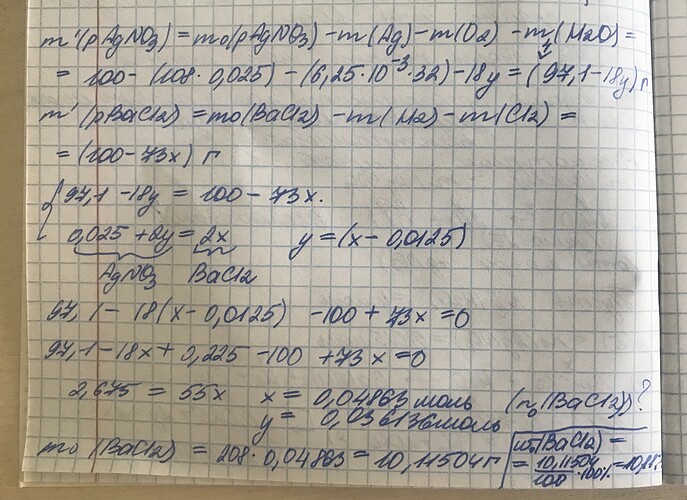 m'(pAgNO3) = m0(pAgNO3) - m(Ag) - m(O2) - m(H2O) =
= 100 - (108 · 0,025) - (6,25·10⁻³·32) - 18y = (97,1 - 18y) г
m'(pBaCl2) = m0(BaCl2) - m(H2) - m(Cl2) =
= (100 - 73x) г
{ 97,1 - 18y = 100 - 73x.
0,025 + 2y = 2x y = (x - 0,0125)
AgNO3 BaCl2
97,1 - 18(x - 0,0125) - 100 + 73x = 0
97,1 - 18x + 0,225 - 100 + 73x = 0
2,675 = 55x x = 0,04863 моль (n0(BaCl2))?
y = 0,036136 моль
m0(BaCl2) = 208 · 0,04863 = 10,11504 г
w0(BaCl2) =
= 10,11504/100 · 100% =